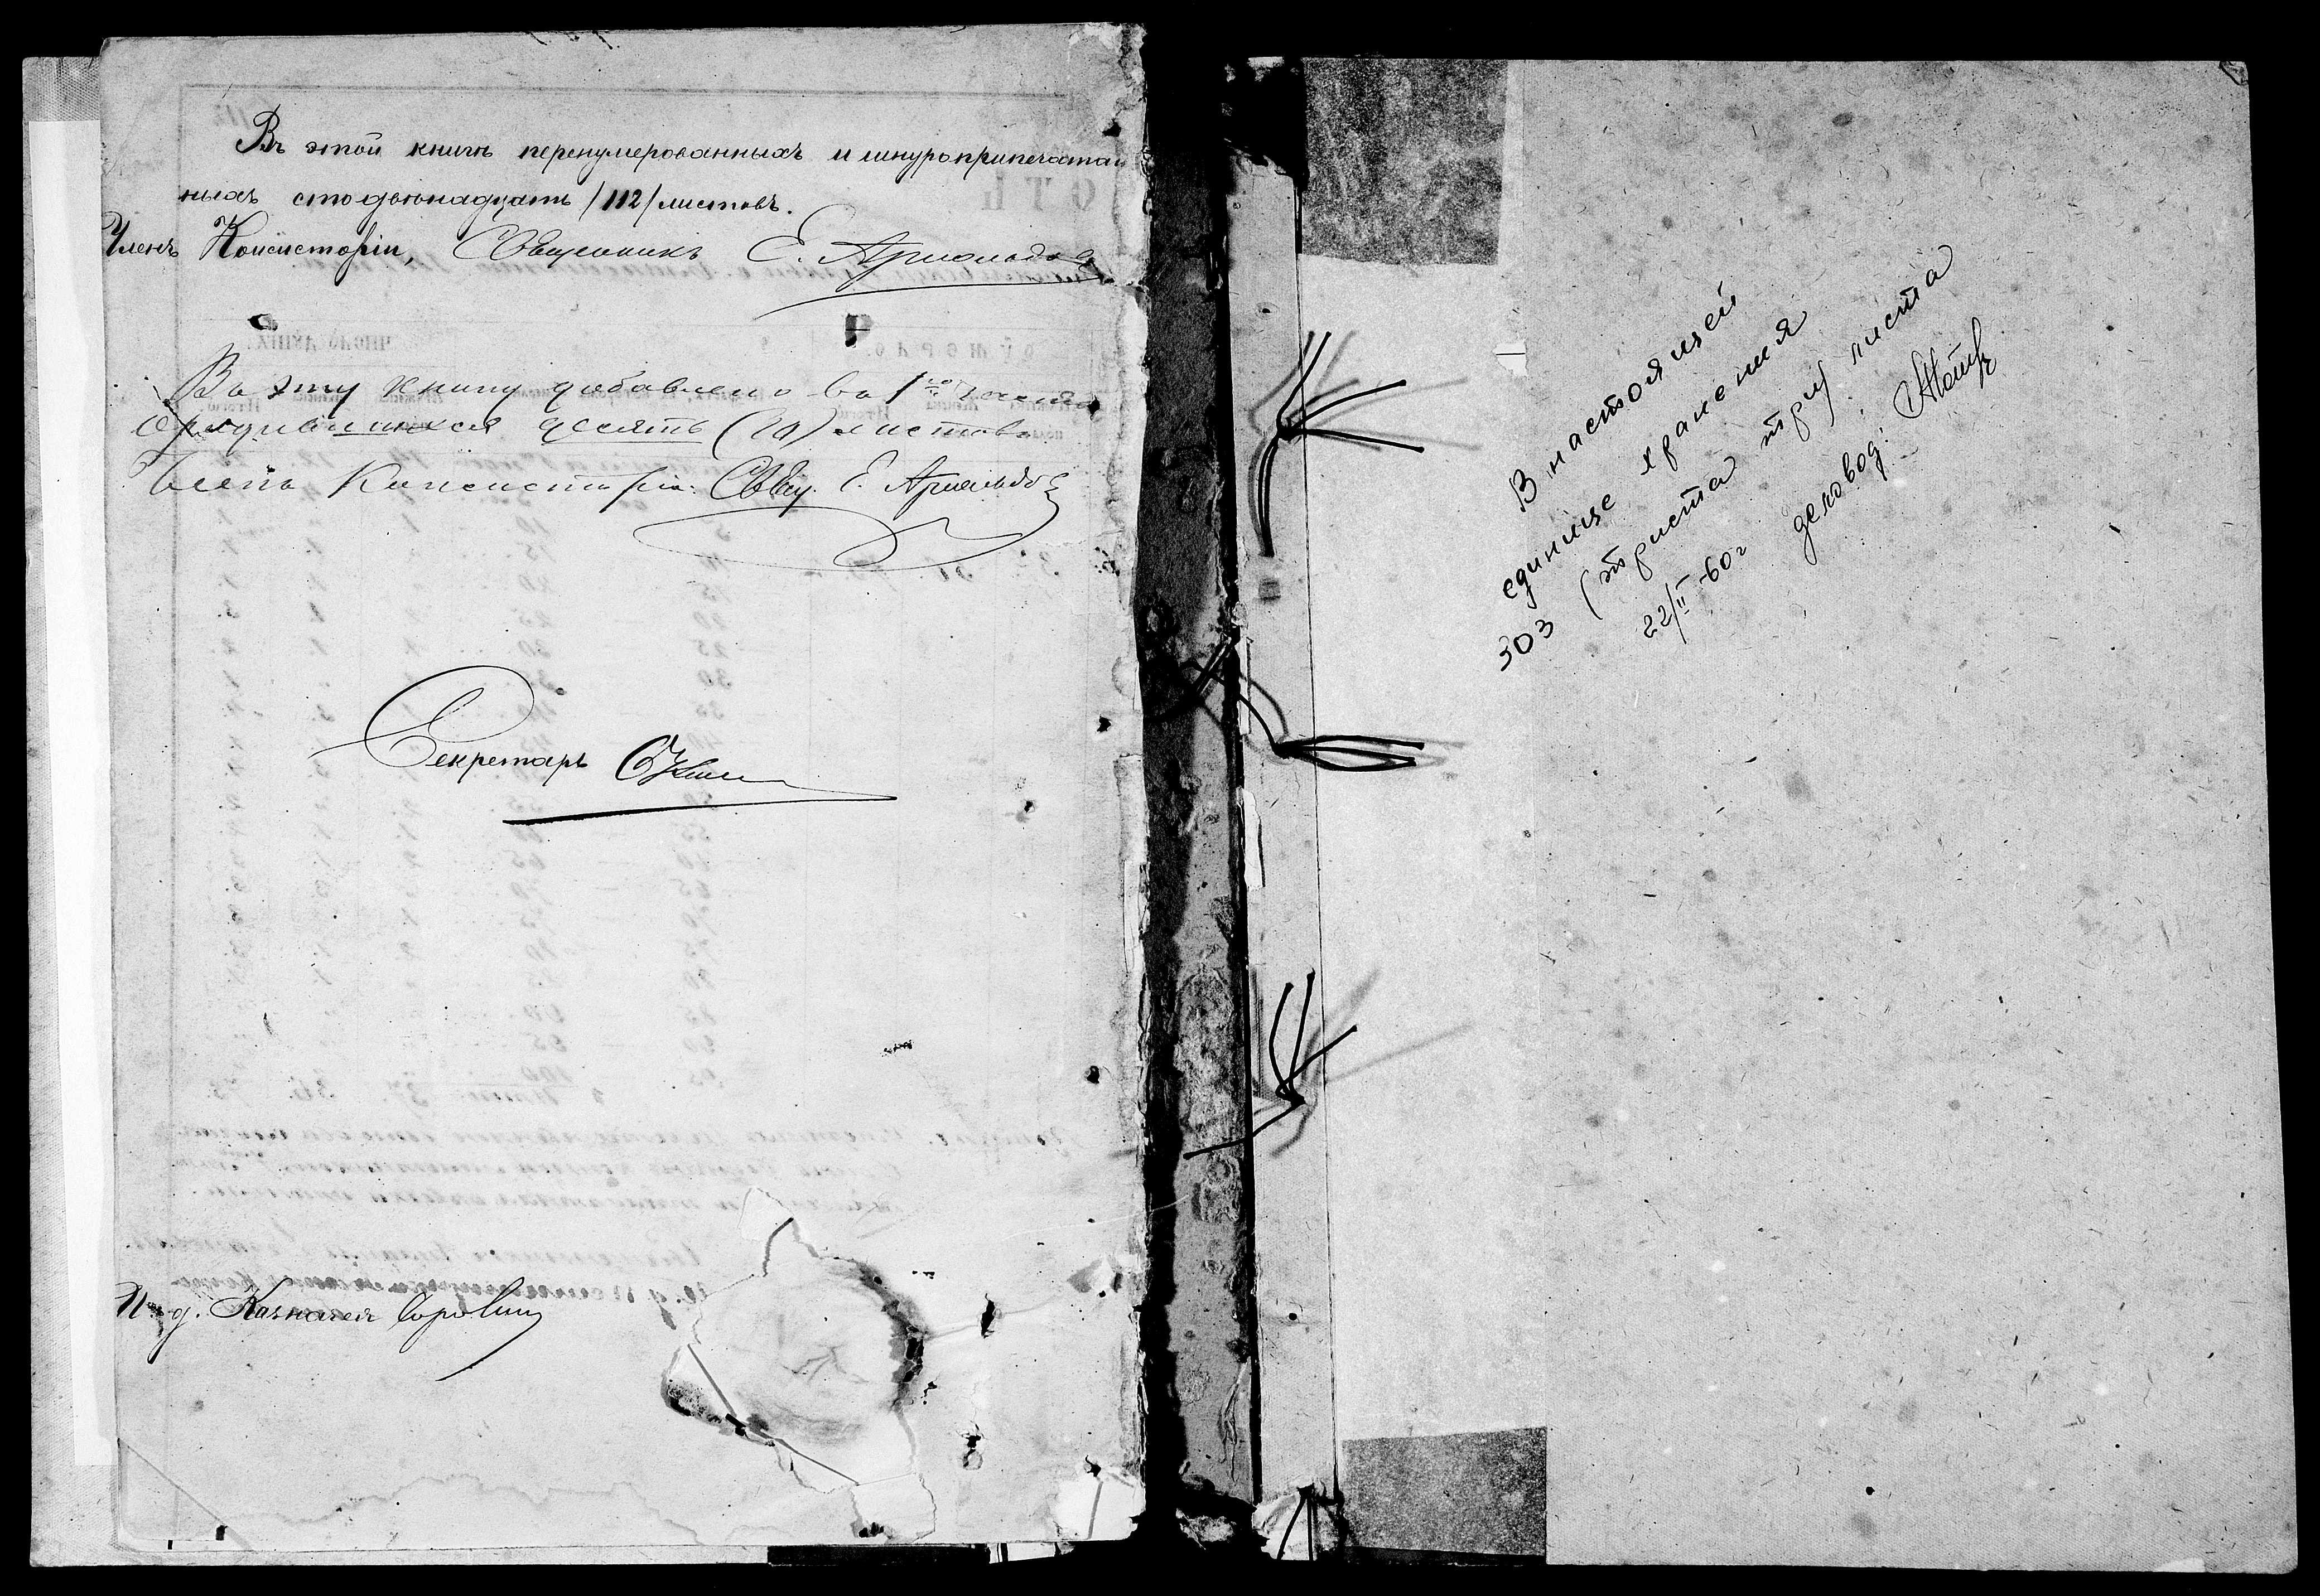 Въ этой книгѣ перенумерованныхъ и шнуроприпечатан
ныхъ стодвѣнадцать /112/ листовъ.
Членъ Консисторіи, Священникъ Е. Арнольдовъ
Въ эту книгу добавлено въ 1ую часть
о родившихся десять (10) листовъ
Членъ Консисторіи: Свящ. Е. Арнольдовъ
Секретарь
И. д. Казначея
В настоящей
единице хранения
303 (триста три) листа
22/II-60г деловод: